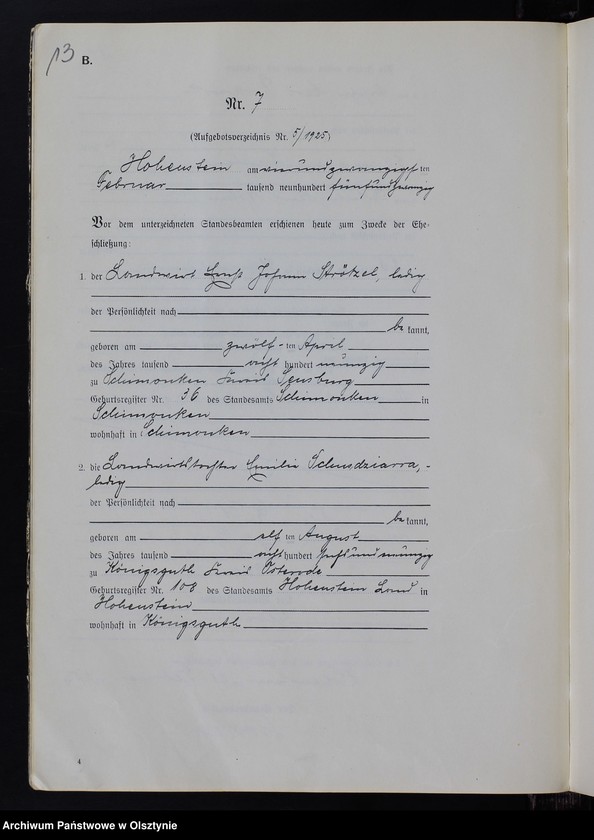 13
B.
Nr. 7
(Aufgebotsverzeichnis Nr. 5/1925)
Hohenstein am vierundzwanzigsten
Februar tausend neunhundert fünfundzwanzig
Vor dem unterzeichneten Standesbeamten erschienen heute zum Zwecke der Ehe-
schließung:
1. der Landwirt Ernst Johann Strötzel, ledig
der Persönlichkeit nach
be kannt,
geboren am zwölf-ten April
des Jahres tausend acht hundert neunzig
zu Schimonken Kreis Sensburg
Geburtsregister Nr. 36 des Standesamts Schimonken in
Schimonken
wohnhaft in Schimonken
2. die Landwirtstochter Emilie ,-
ledig
der Persönlichkeit nach
be kannt,
geboren am elf ten August
des Jahres tausend acht hundert sechsundneunzig
zu Königsguth Kreis Osterode
Geburtsregister Nr. 108 des Standesamts Hohenstein Land in
Hohenstein
wohnhaft in Königsguth
4
Archiwum Państwowe w Olsztynie